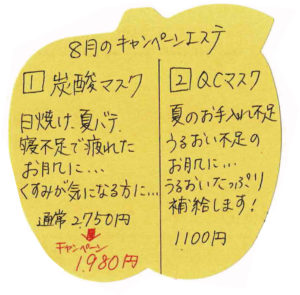 8月のキャンペーンエステ
1 炭酸マスク
日焼け、夏バテ、
寝不足で疲れた
お肌に…
くすみが気になる方に…
通常2,750円
キャンペーン
1,980円
2 QCマスク
夏のお手入れ不足
うるおい不足の
お肌に…
うるおいたっぷり
補給します!
1,100円